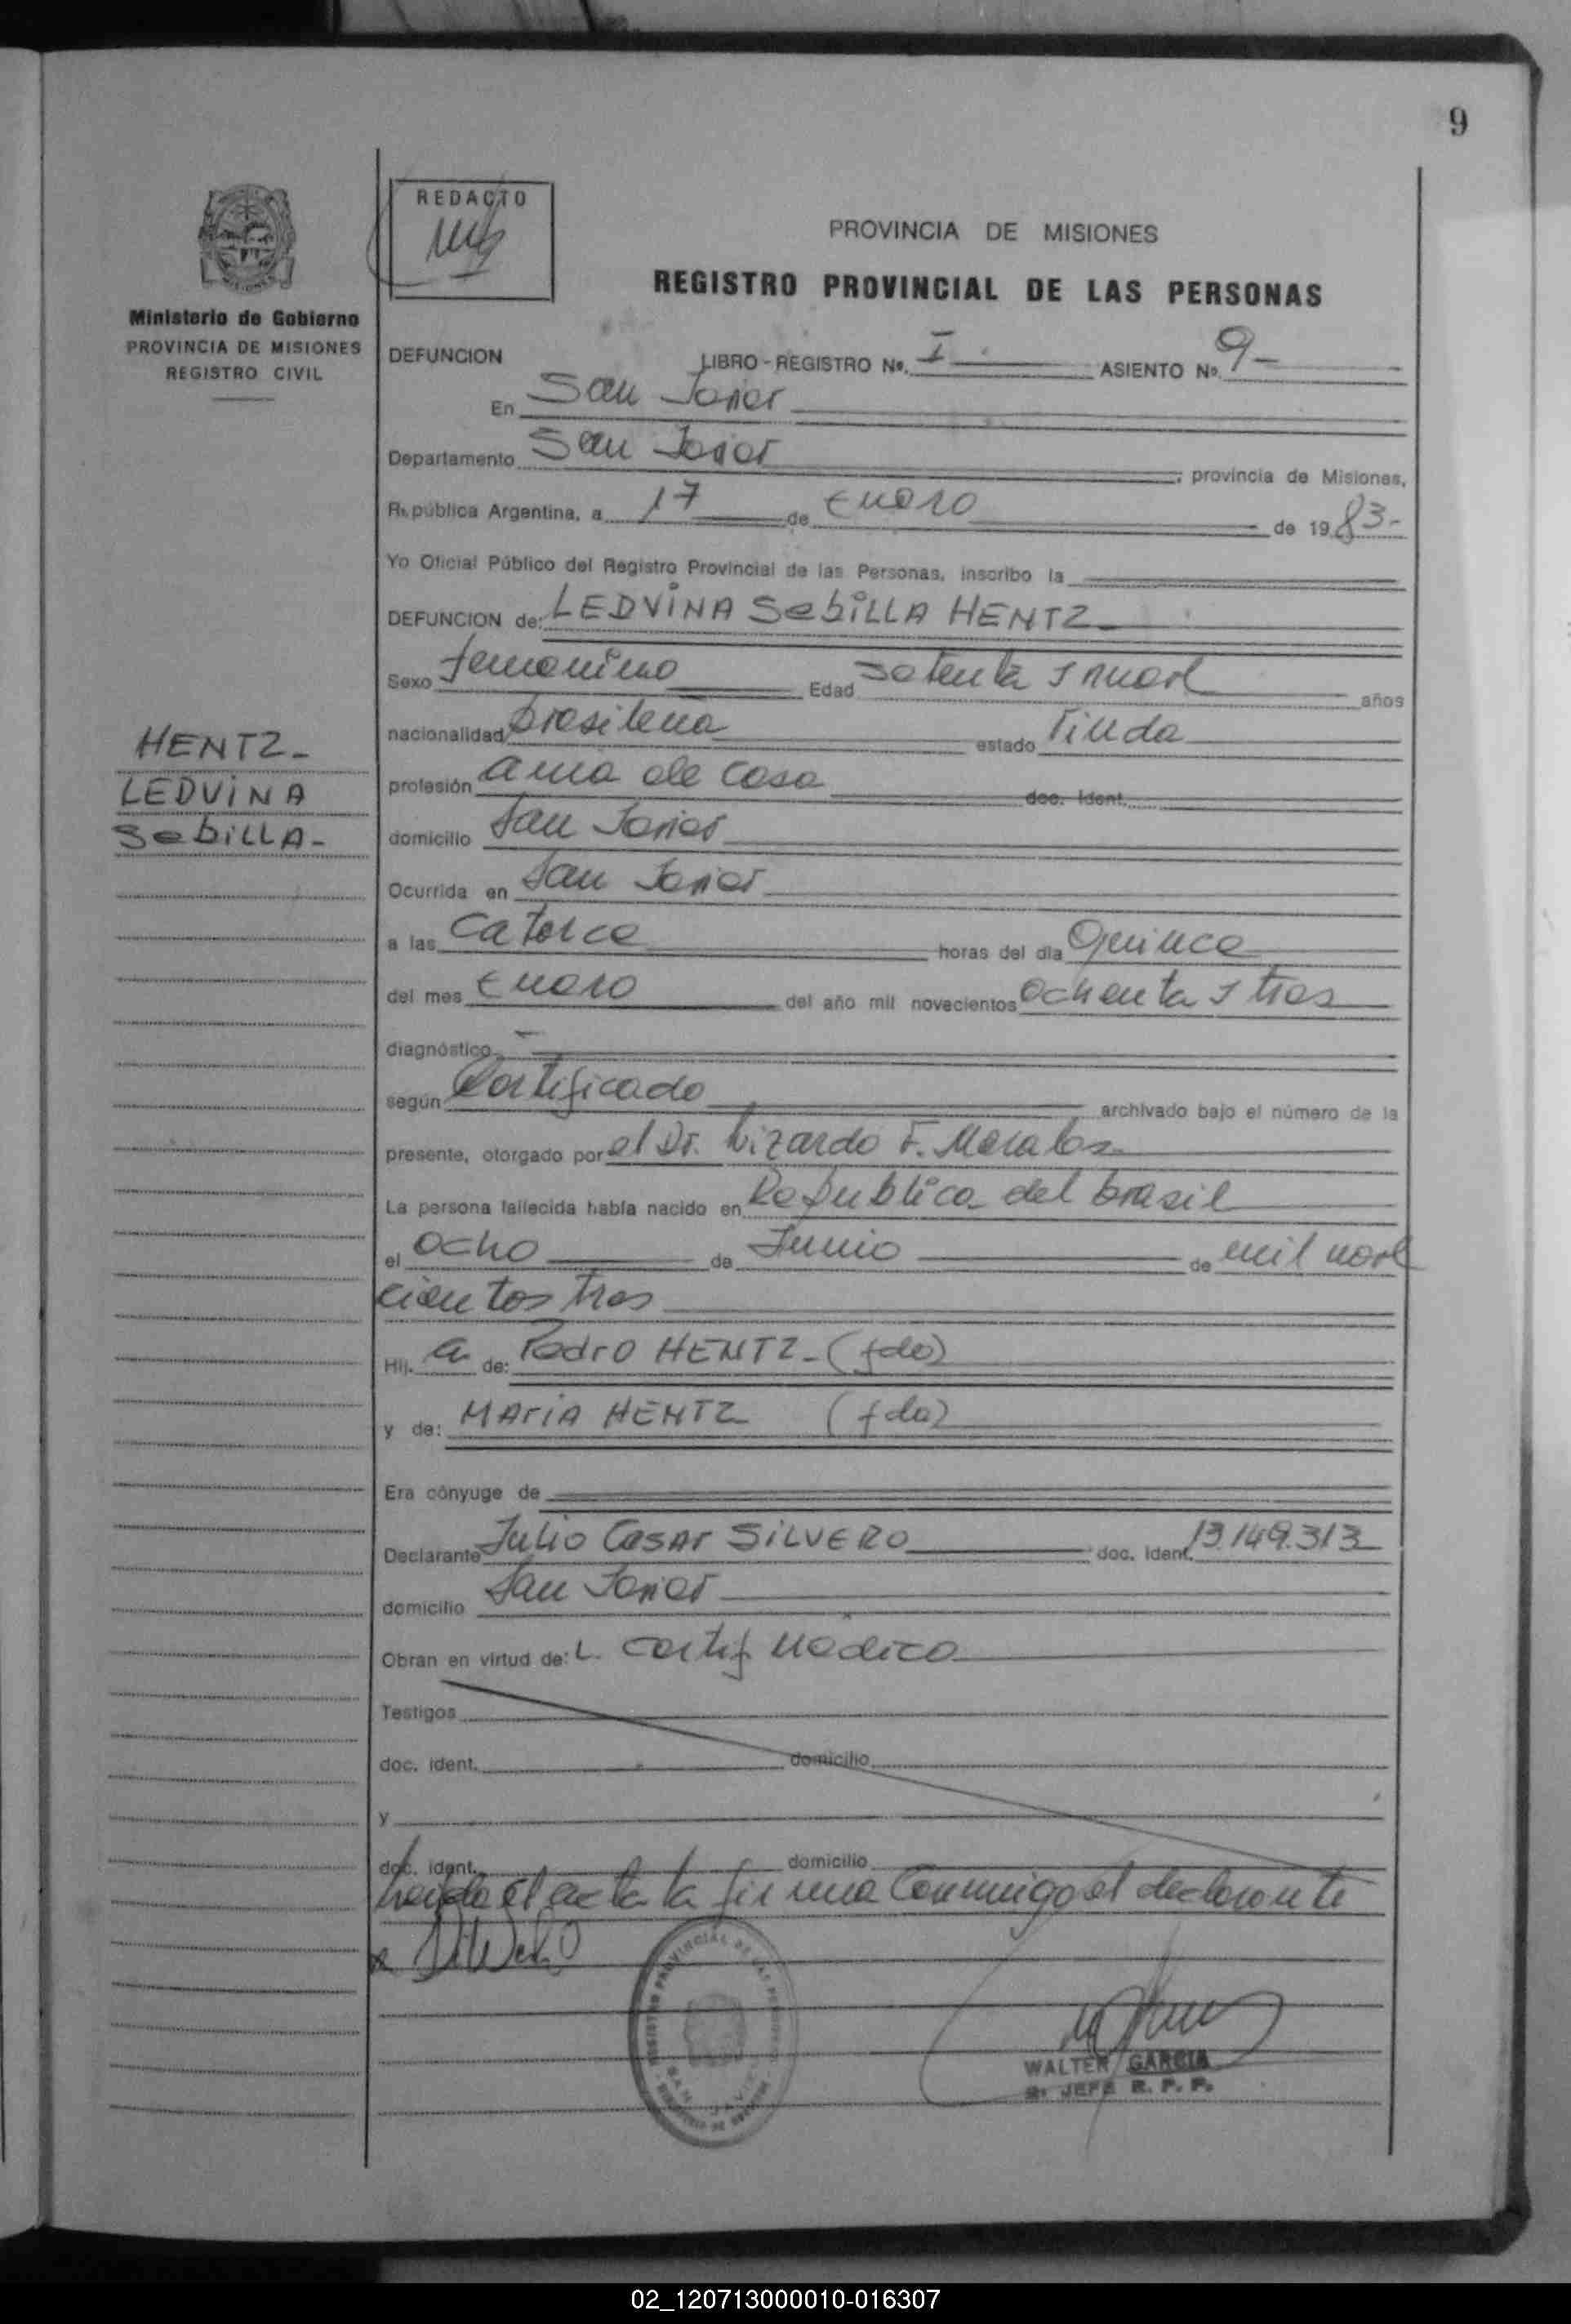 9
REDACTO
PROVINCIA DE MISIONES
REGISTRO PROVINCIAL DE LAS PERSONAS
Ministerio de Gobierno
PROVINCIA DE MISIONES
REGISTRO CIVIL
DEFUNCION LIBRO-REGISTRO Nº. I ASIENTO Nº. 9-
En San Javier
Departamento San Javier ; provincia de Misiones,
República Argentina, a 17 de Enero de 1983-
Yo Oficial Público del Registro Provincial de las Personas, inscribo la
DEFUNCION de: LEDVINA SebiLLA HENTZ-
Sexo femenino Edad setenta y nueve años
nacionalidad brasileña estado Viuda
HENTZ-
LEDVINA
SebiLLA-
profesión ama de casa doc. Ident.
domicilio San Javier
Ocurrida en San Javier
a las catorce horas del día Quince
del mes Enero del año mil novecientos ochenta y tres
diagnóstico -
según Certificado archivado bajo el número de la
presente, otorgado por el Dr. Lizardo F. Morales-
La persona fallecida había nacido en Republica del brasil
el ocho de Junio de mil nove
cientos tres
Hij. a de: Pedro HENTZ-(fdo)
y de: MAriA HENTZ (fda)
Era cónyuge de
Declarante Julio CesAr SiLVERO doc. Ident. 13.149.313
domicilio San Javier
Obran en virtud de: L. certif Médico
Testigos
doc. ident. domicilio
y
doc. ident. domicilio
Leída el acta la firma Conmigo el declarante
REGISTRO PROVINCIAL DE LAS PERSONAS
SAN JAVIER
WALTER GARCIA
JEFE R. P. P.
02_120713000010-016307